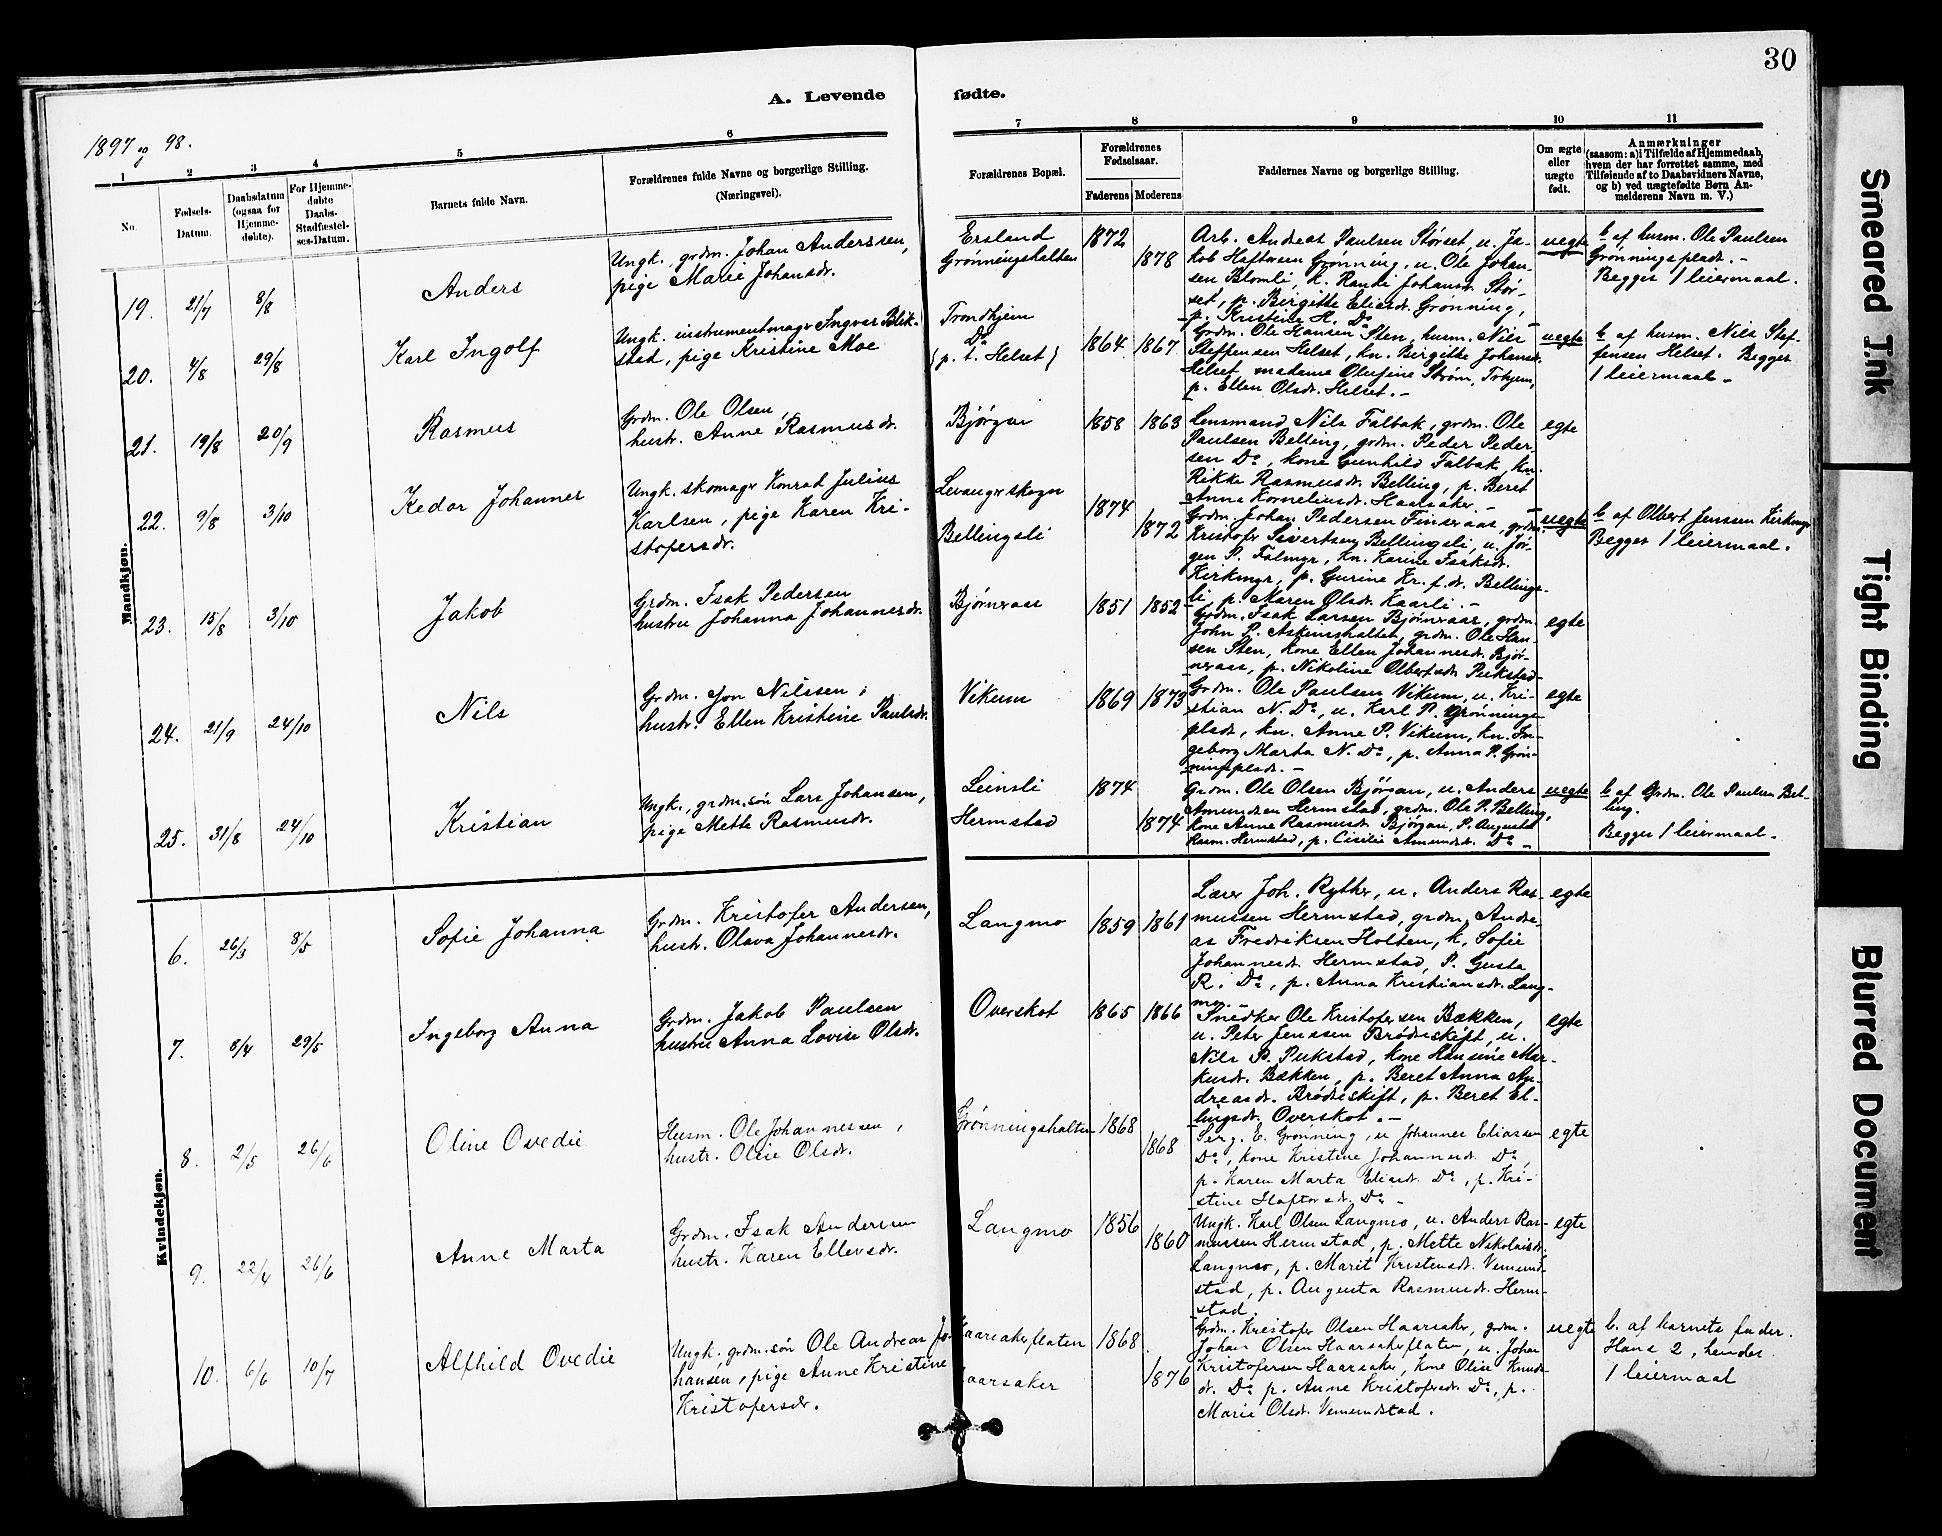 30
A. Levende fødte.
1897 og 98.
1 2 3 4 5 6 7 8 9 10 11
No.
Fødsels-Datum.
Daabsdatum (ogsaa for Hjemme-døbte).
For Hjemme-døbte Daabs-Stadfæstel-ses-Datum.
Barnets fulde Navn.
Forældrenes fulde Navne og borgerlige Stilling. (Næringsvei).
Forældrenes Bopæl.
Forældrenes Fødselsaar.
Faderens Moderens
Faddernes Navne og borgerlige Stilling.
Om ægte eller uægte født.
Anmærkninger
(saasom: a) i Tilfælde af Hjemmedaab,
hvem der har forrettet samme, med
Tilføiende af to Daabsvidners Navne,
og b) ved uægtefødte Børn An-
melderens Navn m. V.)
Mandkjøn.
19. 21/7 8/8 Anders
Ungk., grdm. Johan Anderssen,
pige Marie Johansdr.
Ersland
Grønningshalten
1872 1878
Arb. Andreas Paulsen Størset, u. Ja-
kob Haftorsen Grønning, u. Ole Johan-
sen Blomli, k. Randi Johansdr. Stør-
set, p. Birgitte Eliasdr. Grønning,
p. Kristine H. Do
uegte
b. af husm. Ole Paulsen
Grønningsplads. -
Begges 1 leiermaal.
20. 4/8 29/8 Karl Ingolf
Ungk. instrumentmagr Ingvar Blik-
stad, pige Kristine Moe
Trondhjem
Do
(p. t. Helset)
1864 1867
Grdm. Ole Hansen Sten, husm. Nils
Steffensen Helset, kn. Birgitte Johansdr.
Helset, madame Olufine Strøm, Trhjem,
p. Ellen Olsdr. Helset. -
uegte
b. af husm. Nils Stef-
fensen Helset. Begges
1 leiermaal -
21. 19/8 20/9 Rasmus
Grdm. Ole Olsen,
hustr. Anne Rasmusdr.
Bjørgan
1858 1863
Lensmand Nils Falbak, grdm. Ole
Paulsen Belling, grdm. Peder Peder-
sen Do, kone Gunhild Falbak, kn.
Rikke Rasmusdr. Belling, p. Beret
Anna Korneliusdr. Haarsaker. -
egte
22. 9/8 3/10 Kedor Johannes
Ungk. skomagr Konrad Julius
Karlsen, pige Karen Kri-
stofersdr.
Levangerskogn
Bellingsli
1874 1872
Grdm. Johan Pedersen Finseraas, grdm.
Kristofer Sivertsen Bellingsli, u. Jør-
gen P. Falmyr, kn. Karine Isaksdr.
Kirkmyr, p. Gurine Kr. f. dr. Bellings-
li, p. Maren Olsdr. Kaarli. -
uegte
b. af Olbert Jenssen Kirkmyr
Begges 1 leiermaal.
23. 15/8 3/10 Jakob
Grdm. Isak Pedersen
hustru Johanna Johannesdr.
Bjørneraas
1851 1852
Grdm. Isak Larsen Bjørneraas, grdm.
John P. Askemshalten, grdm. Ole Han-
sen Sten, kone Ellen Johannesdr. Bjør-
neraas, p. Nikoline Olbertsdr. Pukstad -
egte
24. 21/9 24/10 Nils
Grdm. Jon Nilssen,
hustr. Ellen Kristine Paulsdr.
Vikum
1869 1873
Grdm. Ole Paulsen Vikum, u. Kri-
stian N. Do, u. Karl P. Grønnings-
plads, kn. Anne P. Vikum, kn. In-
geborg Marta N. Do, p. Anna P. Grøn-
ningsplads. -
egte
25. 31/8 24/10 Kristian
Ungk., grdm.søn Lars Johansen,
pige Mette Rasmusdr.
Leinsli
Hermstad
1874 1874
Grdm. Ole Olsen Bjørgan, u. Anders
Amundsen Hermstad, grdm. Ole P. Belling,
kone Anne Rasmusdr. Bjørgan, P. Augusta
Rasm. Hermstad, p. Cisilie Amundsdr. Do -
uegte
b. af Grdm. Ole Paulsen Bel-
ling.
Begges 1 leiermaal.
Kvindekjøn.
6. 26/3 8/5 Sofie Johanna
Grdm. Kristofer Andersen,
hustr. Olava Johannesdr.
Langmo
1859 1861
Lærer Joh. Rythe, u. Anders Ras-
mussen Hermstad, grdm. Andre-
as Fredriksen Holten, k. Sofie
Johannesdr. Hermstad, P. Gusta
R. Do, p. Anna Kristiansdr. Lang-
mo. -
egte
7. 8/4 29/5 Ingeborg Anna
Grdm. Jakob Paulsen
hustru Anna Lovise Olsdr.
Overskot
1865 1866
Snedker Ole Kristofersen Bækken,
u. Peter Jenssen Brødreskift, u.
Nils P. Pukstad, kone Hansine Mar-
kusdr. Bækken, p. Beret Anna An-
dreasdr. Brødreskift, p. Beret El-
lingsdr. Overskot. -
egte
8. 2/5 26/6 Oline Ovedie
Husm. Ole Johannessen,
hustr. Olise Olsdr.
Grønningshalten
1868 1868
Serg. E. Grønning, u. Johannes Eliassen
Do, kone Kristine Johannesdr. Do,
p. Karen Marta Eliasdr. Do, p. Kri-
stine Haftorsdr. Do -
egte
9. 22/4 26/6 Anne Marta
Grdm. Isak Andersen
hustr. Karen Ellevsdr.
Langmo
1856 1860
Ungk. Karl Olsen Langmo, u. Anders Ras-
mussen Hermstad, p. Mette Nikolaisdr.
Langmo, p. Marit Kristensdr. Vemund-
stad, p. Augusta Rasmusdr. Herm-
stad.
egte
10. 6/6 10/7 Alfhild Ovedie
Ungk. grdm.søn Ole Andreas Jo-
hansen, pige Anne Kristine
Kristofersdr.
Haarsakerflaten
Haarsaker
1868 1876
Grdm. Kristofer Olsen Haarsaker, grdm.
Johan Olsen Haarsakerflaten, u. Johan
Kristofersen Haarsaker, kone Oline Knuds-
dr. Do p. Anne Kristofersdr. Do, p.
Marie Olsdr. Vemundstad.
uegte
b. af barnets fader.
Hans 2, hendes
1 leiermaal
Smeared Ink
Tight Binding
Blurred Document